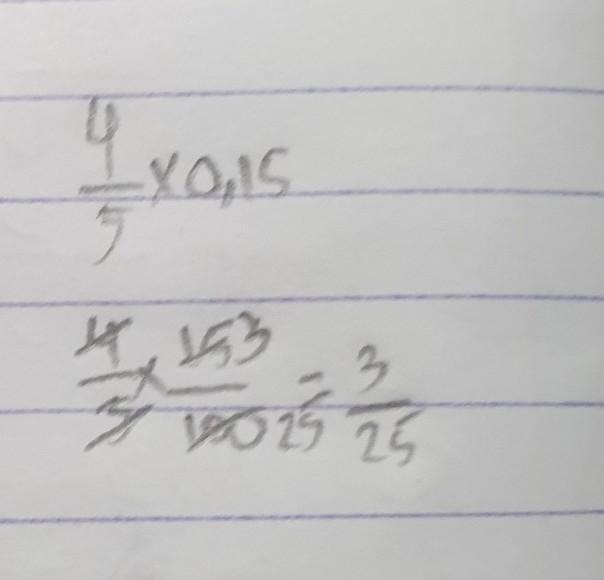 4/5 × 0,15
4/5 × 15 3/100 25 = 3/25